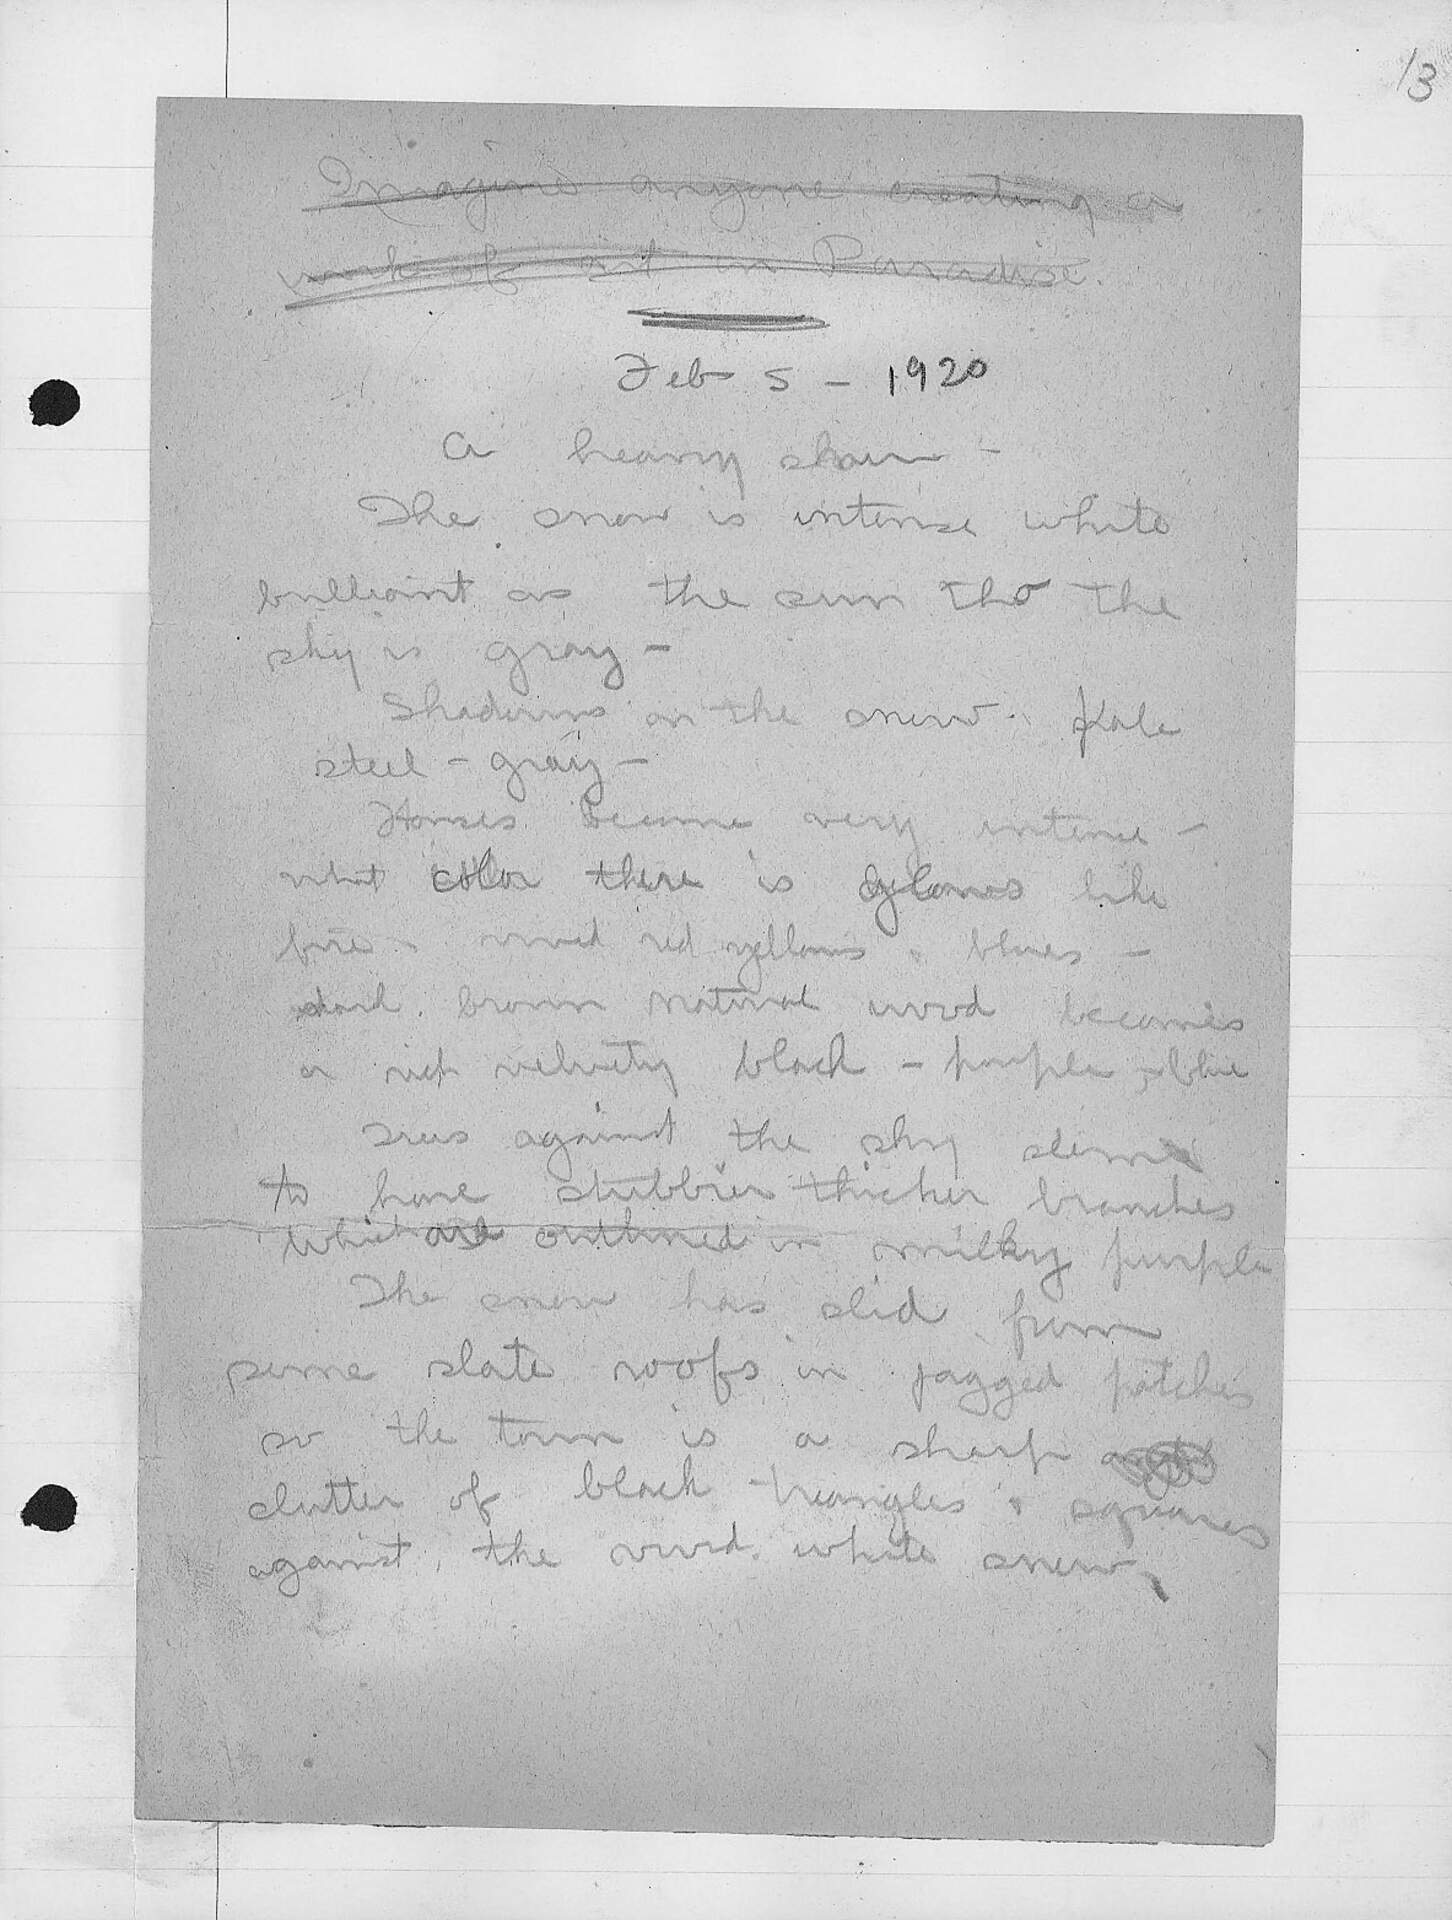 13
Imagine anyone creating a
work of art in Paradise.
Feb 5 - 1920
A heavy snow -
The snow is intense white
brilliant as the sun tho the
sky is gray -
Shadows on the snow. Pale
steel - gray -
Houses become very intense -
what color there is glows like
fire. vivid red yellows + blues -
dark. brown natural wood becomes
a rich velvety black - purple + blue
Trees against the sky seem
to have stubbier thicker branches
which are outlined in milky purple
The snow has slid from
some slate roofs in jagged patches
so the town is a sharp
clutter of black triangles + squares
against the vivid white snow.